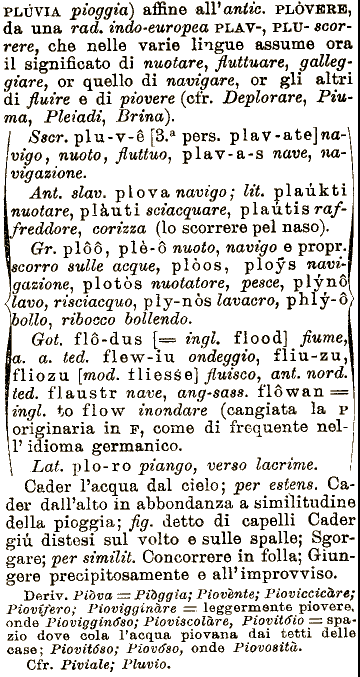 PLÚVIA pioggia) affine all'antic. PLÒVERE,
da una rad. indo-europea PLAV-, PLU- scor-
rere, che nelle varie lingue assume ora
il significato di nuotare, fluttuare, galleg-
giare, or quello di navigare, or gli altri
di fluire e di piovere (cfr. Deplorare, Piu-
ma, Pleiadi, Brina).
Sscr. plu-v-ê [3.ª pers. plav-ate] na-
vigo, nuoto, fluttuo, plav-a-s nave, na-
vigazione.
Ant. slav. plova navigo; lit. plaúkti
nuotare, plàuti sciacquare, plaútis raf-
freddore, corizza (lo scorrere pel naso).
Gr. plôô, plè-ô nuoto, navigo e propr.
scorro sulle acque, plòos, ploỹs navi-
gazione, plotòs nuotatore, pesce, plýnô
lavo, risciacquo, ply-nòs lavacro, phlý-ô
bollo, ribocco bollendo.
Got. flô-dus [= ingl. flood] fiume,
a. a. ted. flew-iu ondeggio, fliu-zu,
fliozu [mod. fliesse] fluisco, ant. nord.
ted. flaustr nave, ang-sass. flôwan =
ingl. to flow inondare (cangiata la P
originaria in F, come di frequente nel-
l'idioma germanico.
Lat. plo-ro piango, verso lacrime.
Cader l'acqua dal cielo; per estens. Ca-
der dall'alto in abbondanza a similitudine
della pioggia; fig. detto di capelli Cader
giú distesi sul volto e sulle spalle; Sgor-
gare; per similit. Concorrere in folla; Giun-
gere precipitosamente e all'improvviso.
Deriv. Piòva = Piòggia; Piovènte; Pioviccicàre;
Piovífero; Piovigginàre = leggermente piovere,
onde Piovigginóso; Pioviscolàre, Piovitóio = spa-
zio dove cola l'acqua piovana dai tetti delle
case; Piovitóso; Piovóso, onde Piovosità.
Cfr. Piviale; Pluvio.